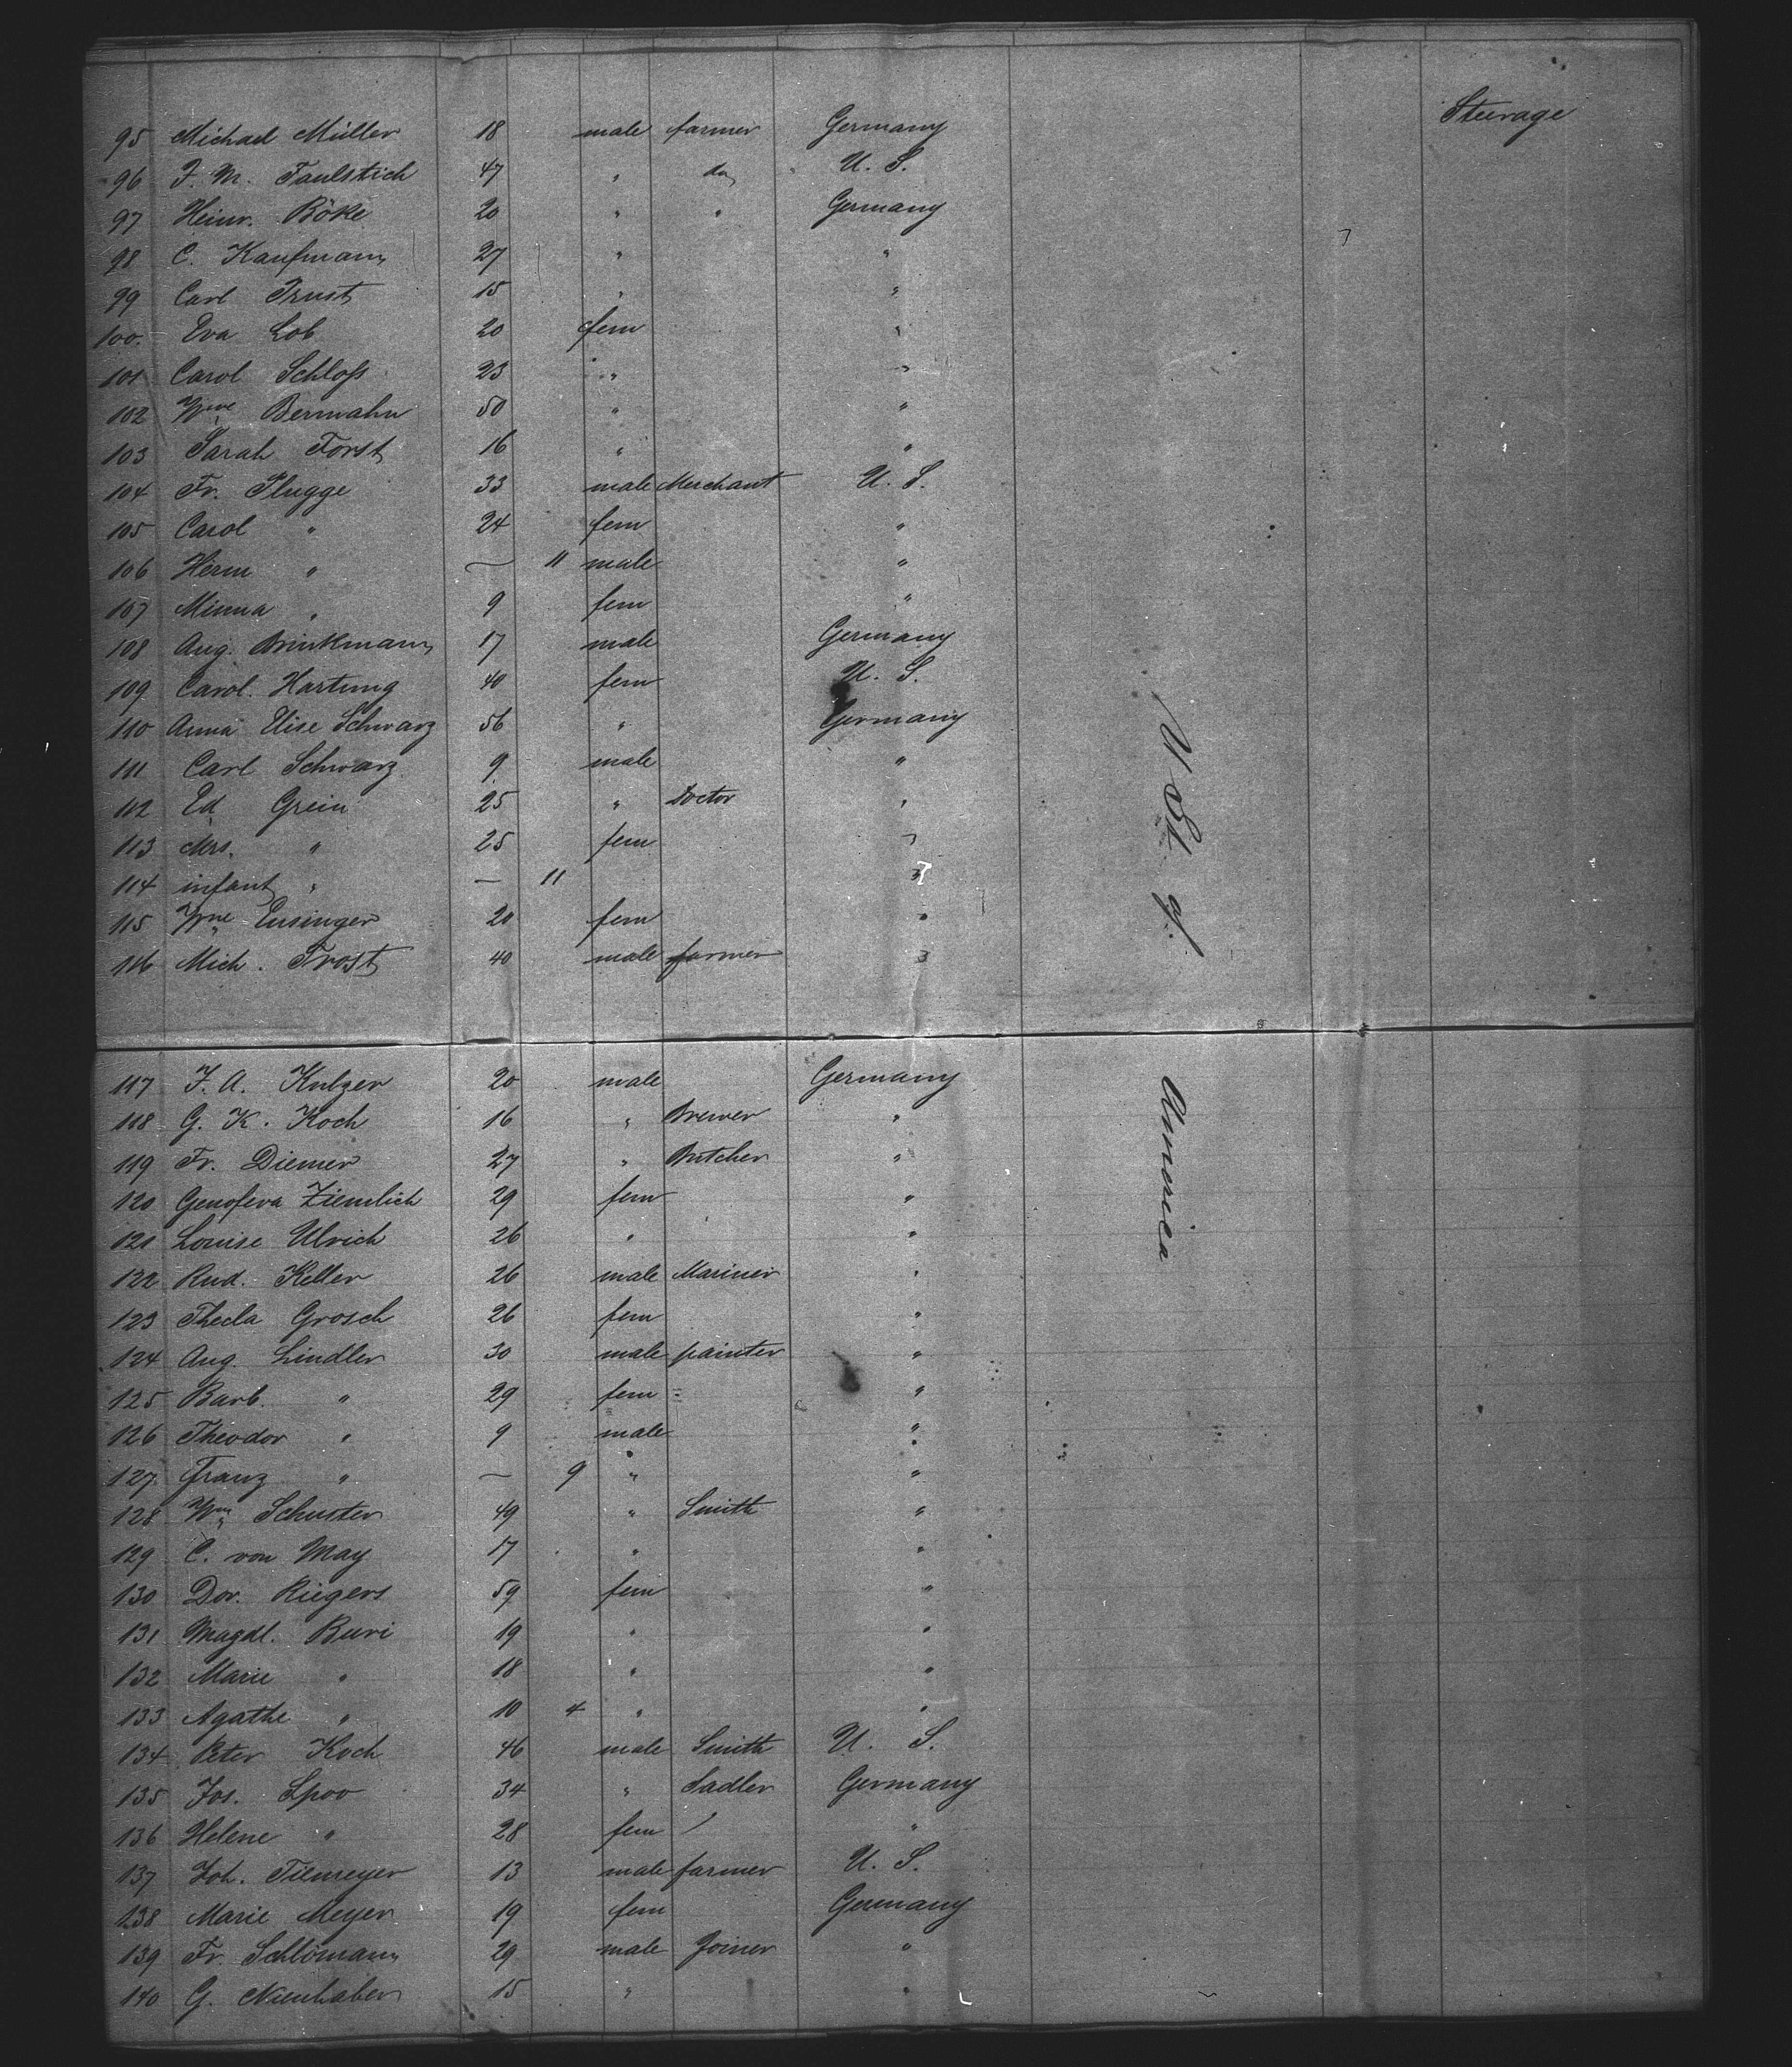 Steerage
95 Michael Müller 18 male farmer Germany
96 F. M. Faulstich 47 " do U. S.
97 Heinr. Böke 20 " " Germany
98 C. Kaufmann 27 " "
99 Carl Prust 15 " "
100. Eva Lob 20 fem "
101 Carol Schloss 23 " "
102 Wme Bermahn 50 " "
103 Sarah Forst 16 " "
104 Fr. Plugge 33 male Merchant U. S.
105 Carol " 24 fem "
106 Herm " — 11 male "
107 Minna " 9 fem "
108 Aug. Brinkmann 17 male Germany
109 Carol. Hartung 40 fem U. S.
110 Anna Elise Schwarz 56 " Germany
111 Carl Schwarz 9 male "
112 Ed Grein 25 " Doctor "
113 Mrs. " 25 fem "
114 infant " — 11 "
115 Wme Ensinger 20 fem "
116 Mich. Frost 40 male farmer "
U St. of.
117 F. A. Kulzer 20 male Germany
118 G. K. Koch 16 " Brewer "
119 Fr. Diemer 27 " Butcher "
120 Genofeva Ziemlich 29 fem "
121 Louise Ulrich 26 " "
122 Rud. Keller 26 male Mariner "
123 Thecla Grosch 26 fem "
124 Aug. Lindler 30 male painter "
125 Barb. " 29 fem "
126 Theodor " 9 male "
127. Franz " — 9 " "
128 Wm Schuster 49 " Smith "
129 C. von May 17 " "
130 Dor. Riegers 59 fem "
131 Magdl. Buri 19 " "
132 Marie " 18 " "
133 Agathe " 10 4 " "
134 Peter Koch 46 male Smith U. S.
135 Jos. Spoo 34 " Sadler Germany
136 Helene " 28 fem "
137 Joh. Tiemeyer 13 male farmer U. S.
138 Marie Meyer 19 fem Germany
139 Fr. Schlömann 29 male Joiner "
140 G. Nienhaber 15 " "
America